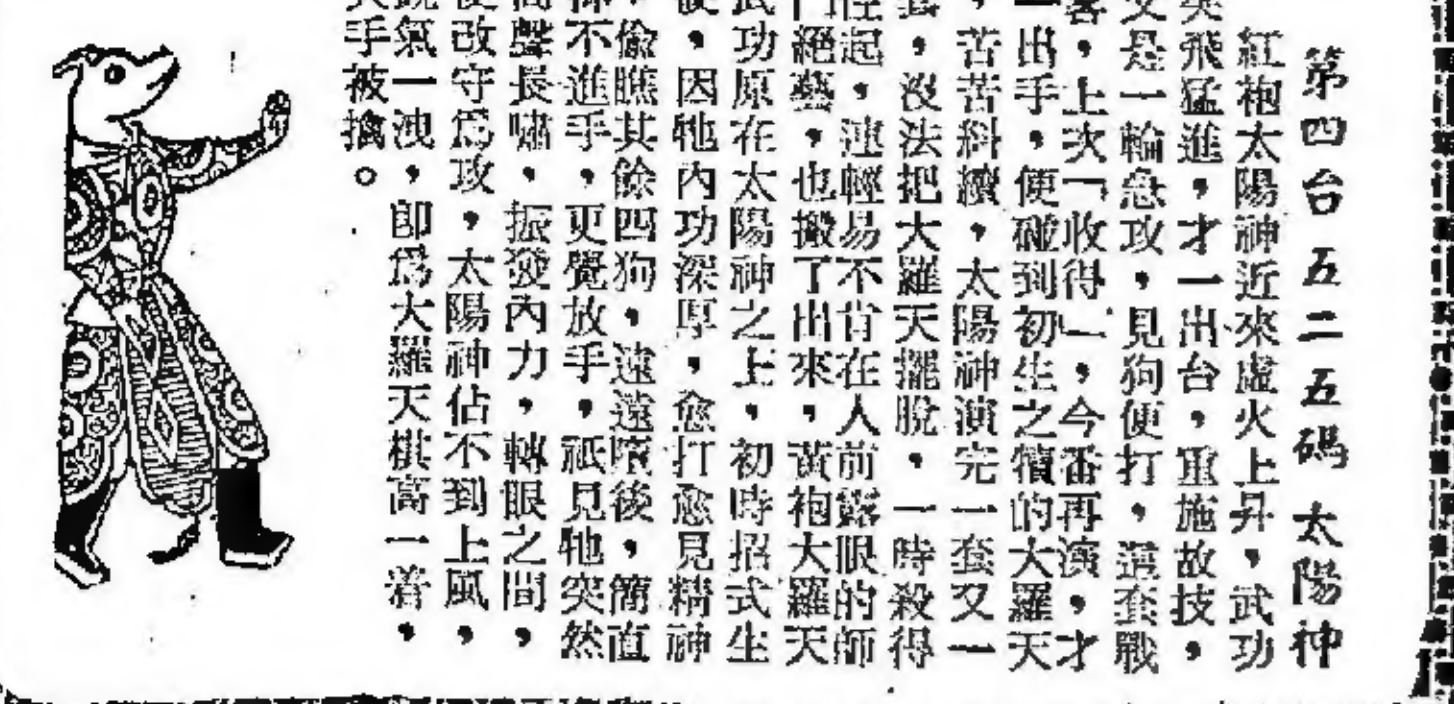 第四台五二五碼 太陽神
紅袍太陽神近來虛火上昇,武功
突飛猛進,才一出台,重施故技,
又是一輪急攻,見狗便打,這套戰
畧,上次「收得」,今番再演,才
一出手,便碰到初生之犢的大羅天
,苦苦糾纏,太陽神演完一套又一
套,沒法把大羅天擺脫,一時殺得
性起,連輕易不肯在人前露眼的師
門絕藝,也搬了出來,黃袍大羅天
武功原在太陽神之上,初時招式生
硬,因牠內功深厚,愈打愈見精神
,偷瞧其餘四狗,遠遠墮後,簡直
不進手,更覺放手,祇見牠突然
高聲長嘯,振發內力,轉眼之間,
便改守爲攻,太陽神佔不到上風,
銳氣一洩,卽爲大羅天棋高一着,
失手被擒。